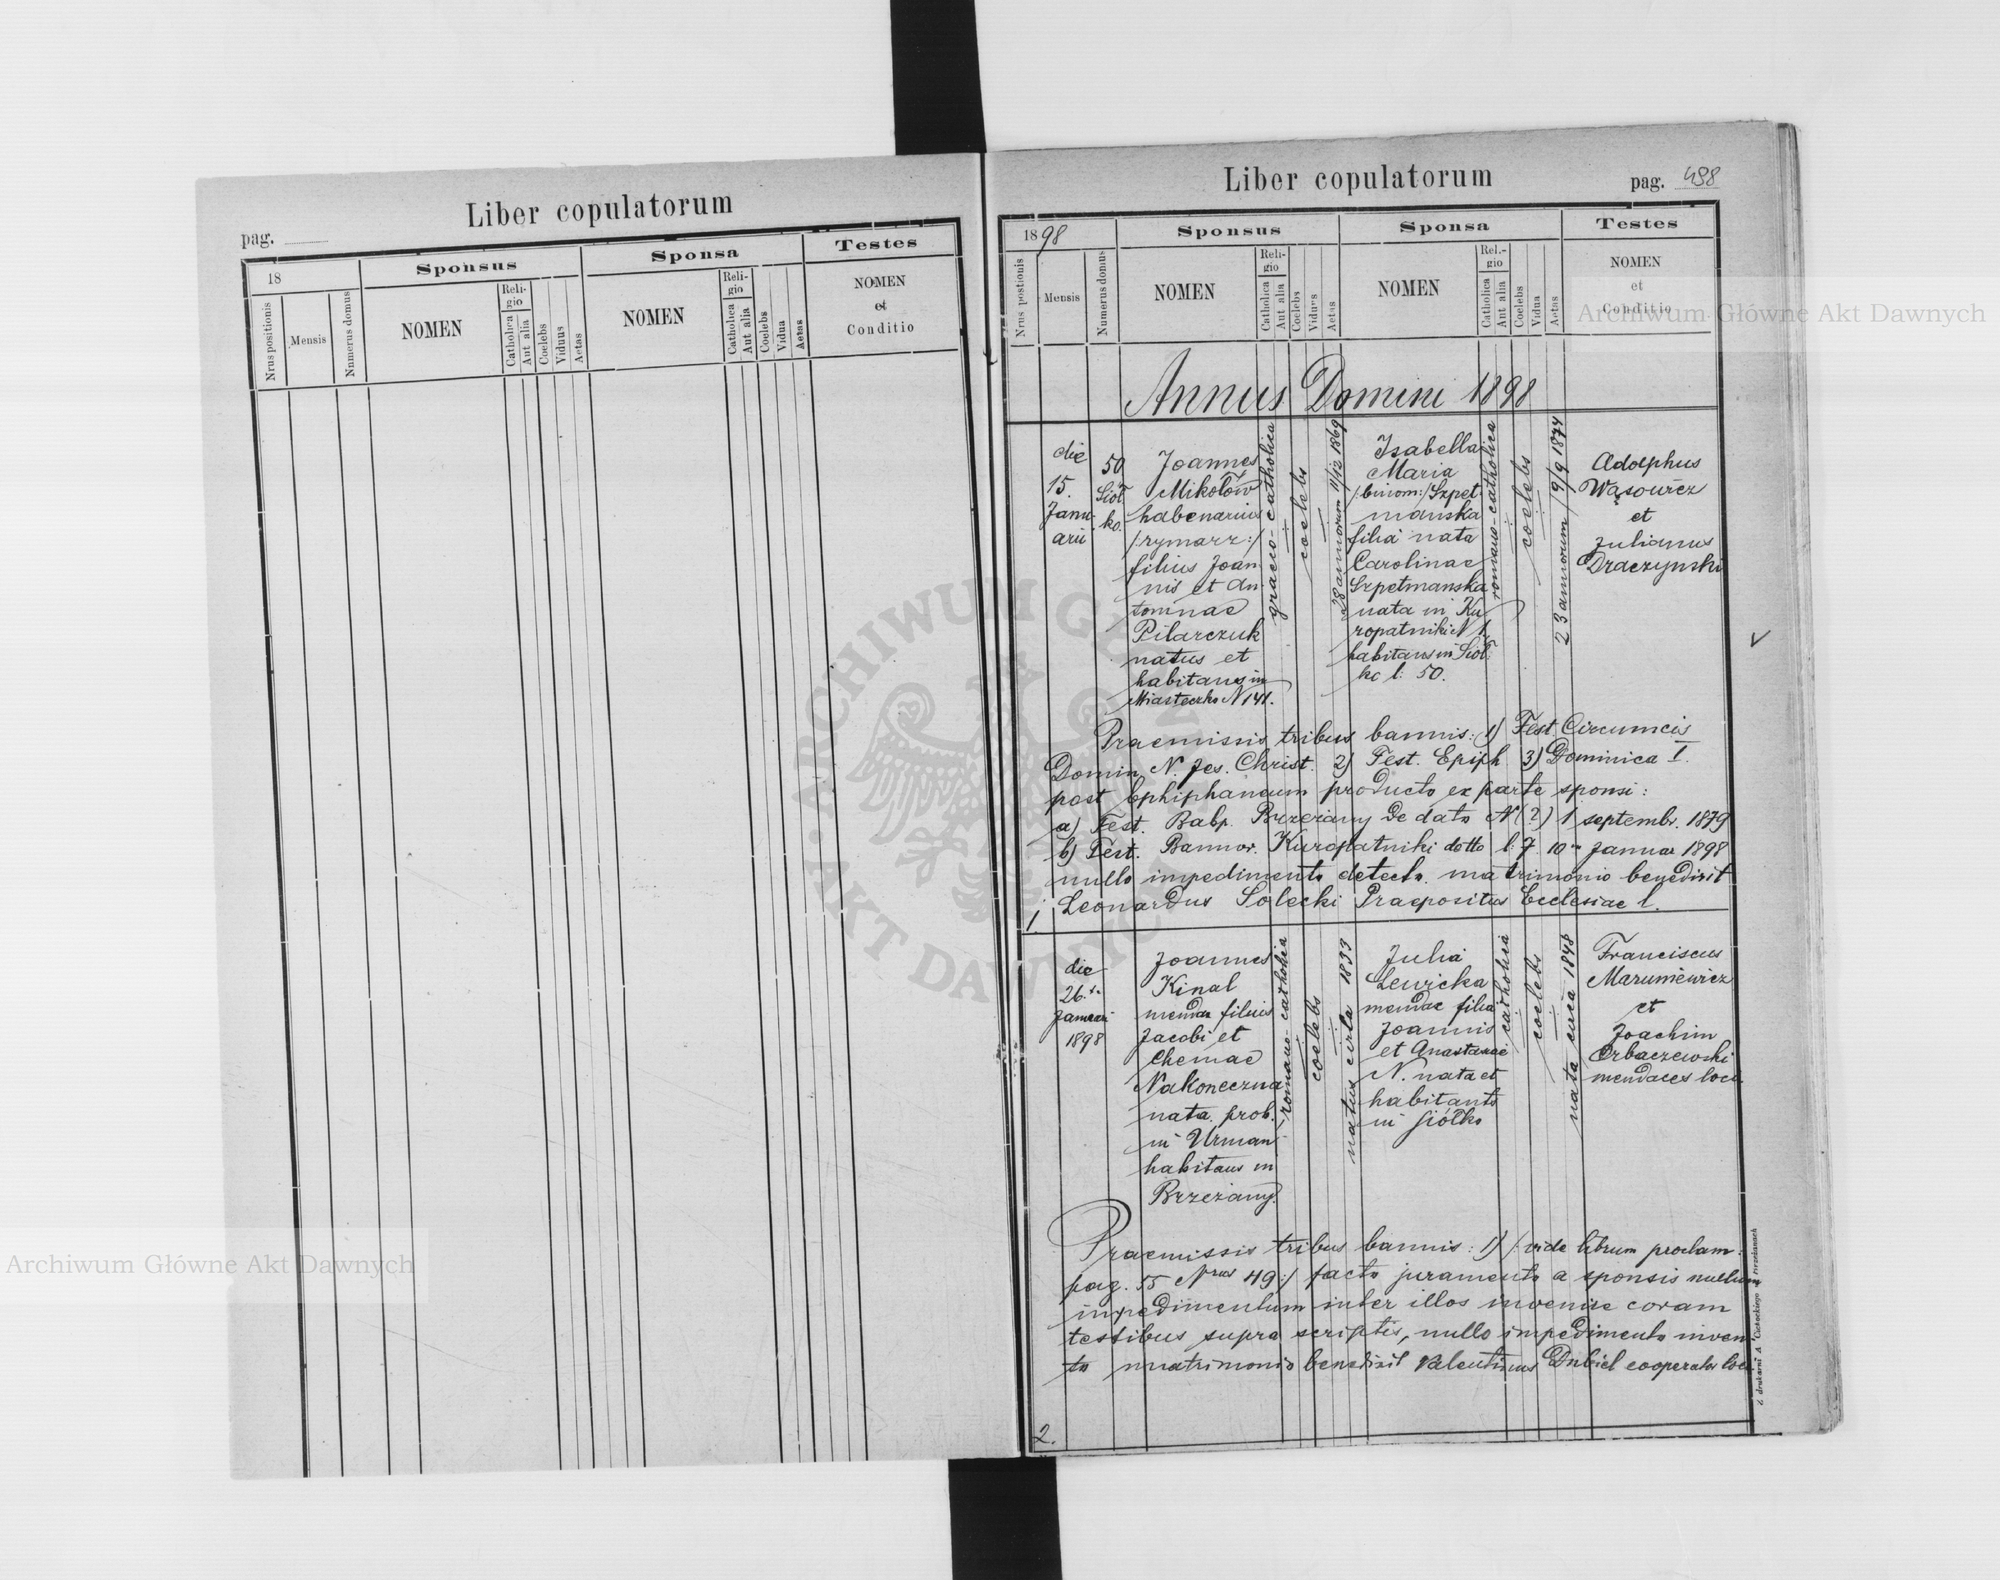 Liber copulatorum
pag.
18
Sponsus
Sponsa
Testes
Nrus positionis
Mensis
Numerus domus
NOMEN
Religio
Catholica
Aut alia
Coelebs
Viduus
Aetas
NOMEN
Religio
Catholica
Aut alia
Coelebs
Vidua
Aetas
NOMEN
et
Conditio
Liber copulatorum
pag. 498
1898
Sponsus
Sponsa
Testes
Nrus postionis
Mensis
Numerus domus
NOMEN
Religio
Catholica
Aut alia
Coelebs
Viduus
Aetas
NOMEN
Rel.-
gio
Catholica
Aut alia
Coelebs
Vidua
Aetas
NOMEN
et
Conditio
Annus Domini 1898
1.
die
15.
Janu-
arii
50
Siół
ko.
Joannes
Mikołów
habenarius
/:rymarz:/
filius Joan
nis et An
toninae
Pilarczuk
natus et
habitans in
Miasteczko N 141.
graeco-catholica
coelebs
28 annorum 11/12 1869
Isabella
Maria
/:binom:/ Szpet-
manska
filia nata
Carolinae
Szpetmanska
nata in Ku
ropatniki N 1
habitans in Siół
ko l: 50.
romano-catholica
coelebs
23 annorum /9/9 1874
Adolphus
Wąsowicz
et
Julianus
Draczynski
Praemissis tribus bannis: 1) Fest. Circumcis
Domin. N. Jes. Christ. 2) Fest. Epiph 3) Dominica I.
post Ephiphaneam producto ex parte sponsi:
a) Test. Bapt. Brzeżany de dato N(?) 1 septembr. 1879
b) Test. Bannor. Kuropatniki dotto l: 7. 10 Januar 1898
nullo impedimento detecto matrimonio benedixit
Leonardus Solecki Praepositus Ecclesiae l.
2.
die
26.
Januari
1898
Joannes
Kinal
mendax filius
Jacobi et
Nakoneczna
nata prob.
in Urman
habitans in
Brzeżany.
romano-catholica
coelebs
natus cirka 1833
Julia
Lewicka
mendac filia
Joannis
et Anastasiae
N. nata et
habitants
in Siółko
catholica
coelebs
nata circa 1848
Franciscus
Maruniewicz
et
Joachim
Orbaczewski
mendaces loci
Praemissis tribus bannis: 1) /:vide librum proclam:
pag. 55 Nrus 49:/ facto juramento a sponsis nullum
impedimentum inter illos invenise coram
testibus supra scriptis, nullo impedimento inven
to matrimonio benedixit Valentinus Dubiel cooperator loci
Archiwum Główne Akt Dawnych
Archiwum Główne Akt Dawnych
ARCHIWUM GŁÓWNE
AKT DAWNYCH